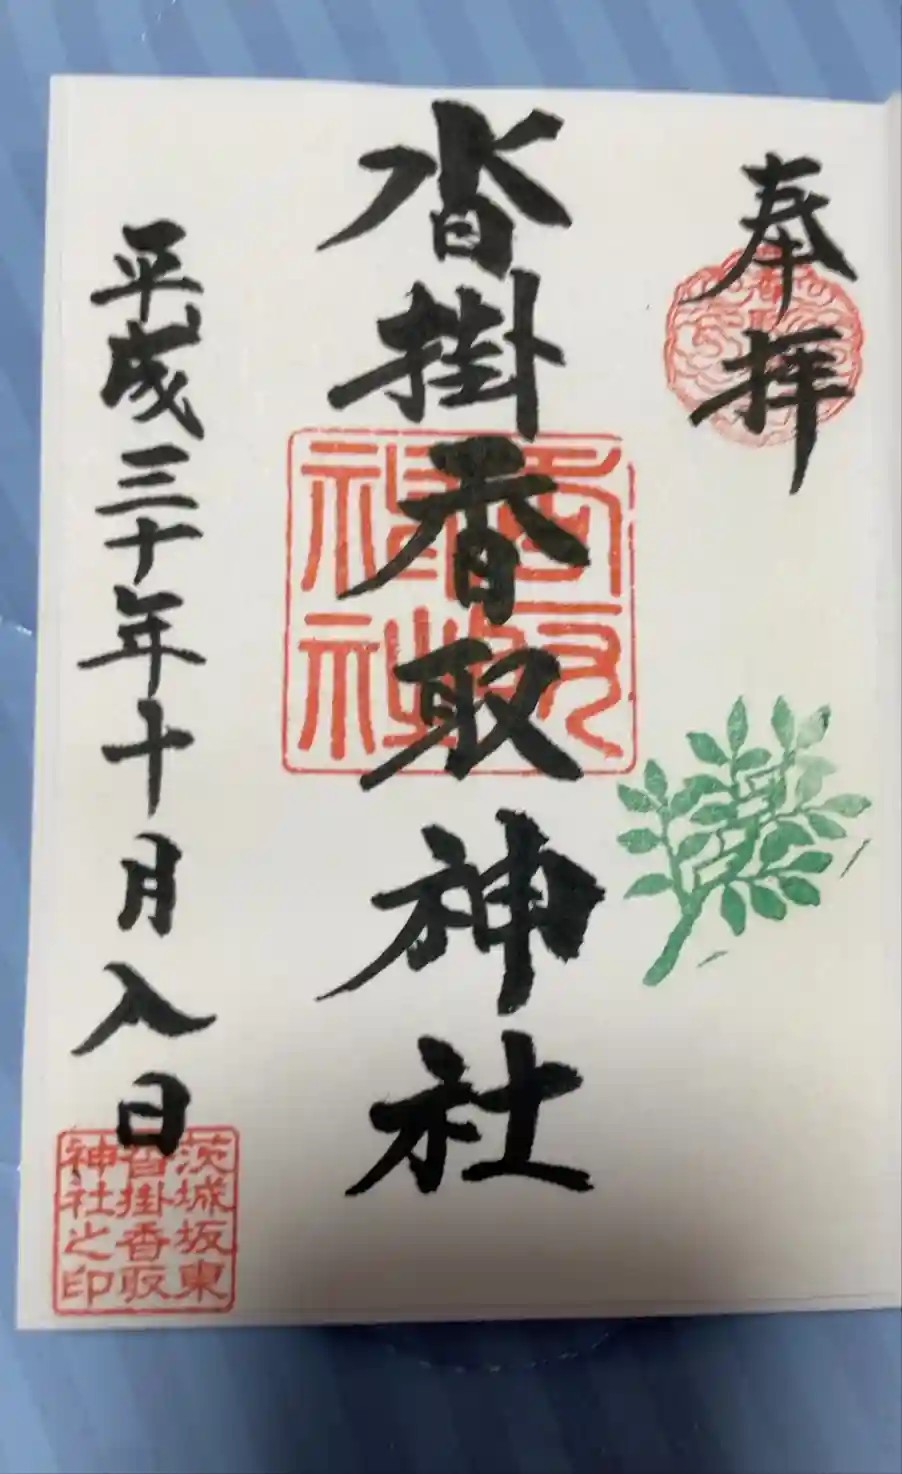 奉拝
沓掛香取神社
香取
神社
平成三十年十月八日
茨城坂東
沓掛香取
神社之印